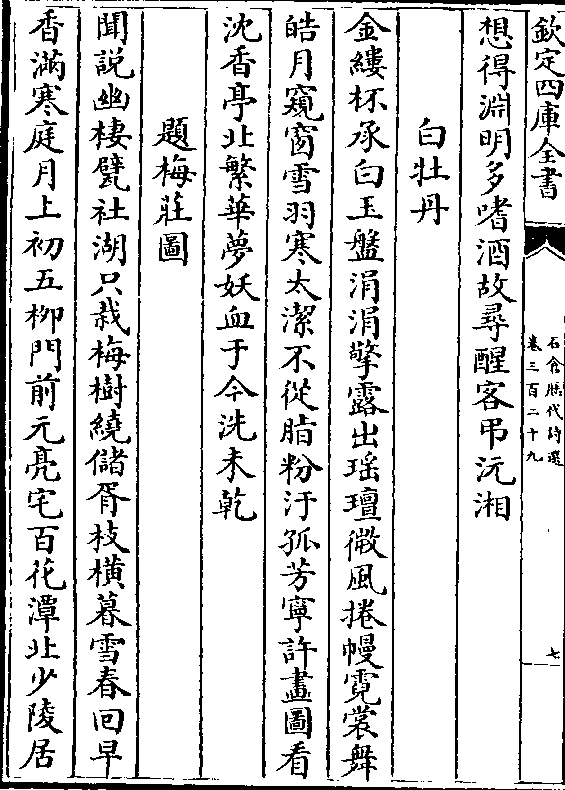 欽定四庫全書
石倉歷代詩選
卷三百二十九
七
想得淵明多嗜酒故尋醒客弔沅湘
白牡丹
金縷杯承白玉盤涓涓擎露出瑶壇微風捲幔霓裳舞
皓月窺窗雪羽寒太潔不從脂粉汙孤芳寧許畫圖看
沈香亭北繁華夢妖血于今洗未乾
題梅莊圖
聞說幽棲甓社湖只栽梅樹繞儲胥枝横暮雪春回早
香滿寒庭月上初五柳門前元亮宅百花潭北少陵居